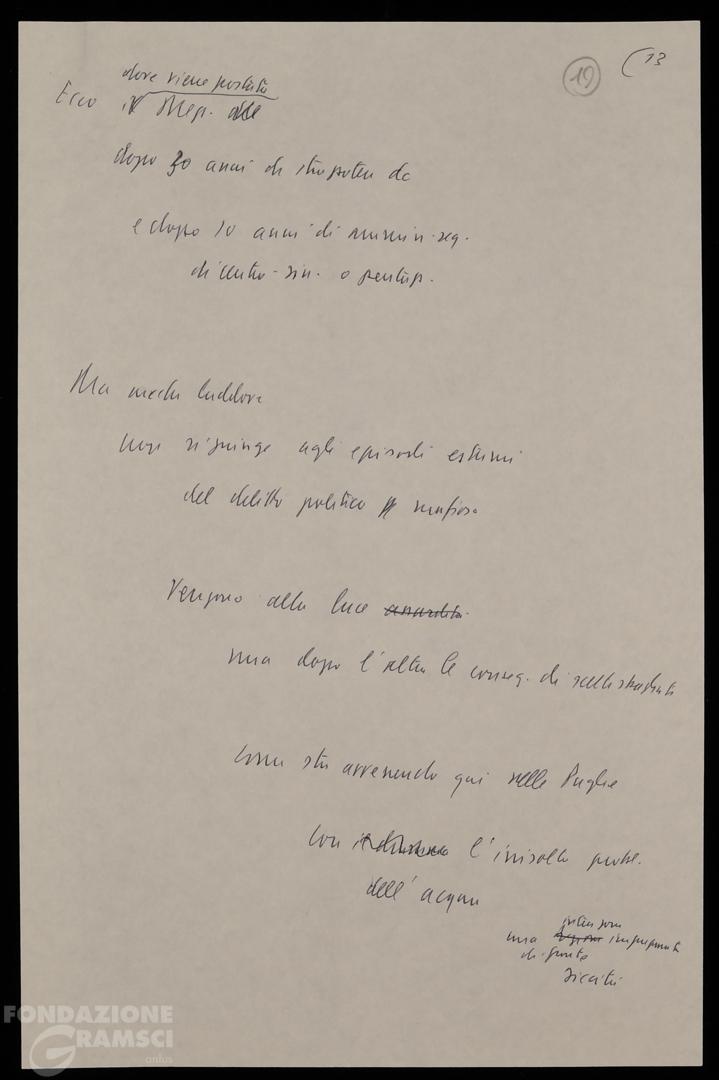 19
13
dove viene portato
Ecco il Mezz. alle
dopo 30 anni di strapotere dc
e dopo 10 anni di
di centro-sin. o pentap.
Ma anche laddove
non si giunge agli episodi estremi
del delitto politico mafioso
Vengono alla luce
una dopo l'altra le conseg. di scelte sbagliate
Come sta avvenendo qui nelle Puglie
con l'irrisolto probl.
dell'acqua
una impreparata
di fronte
siccità
FONDAZIONE
GRAMSCI
onlus